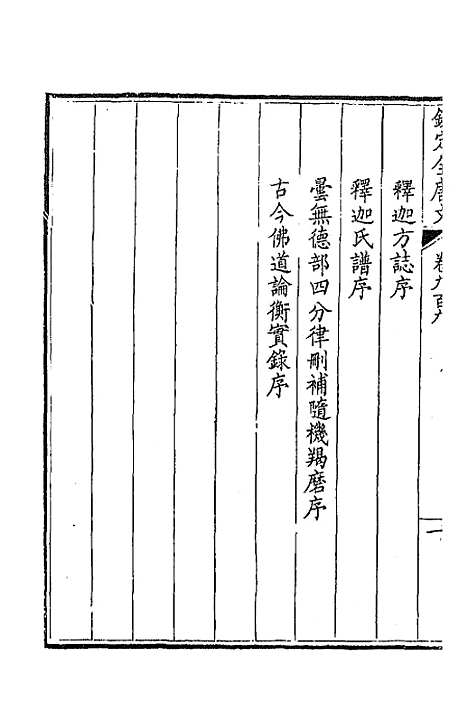 欽定全唐文 卷九百九 一
釋迦方誌序
釋迦氏譜序
曇無德部四分律刪補隨機羯磨序
古今佛道論衡實錄序